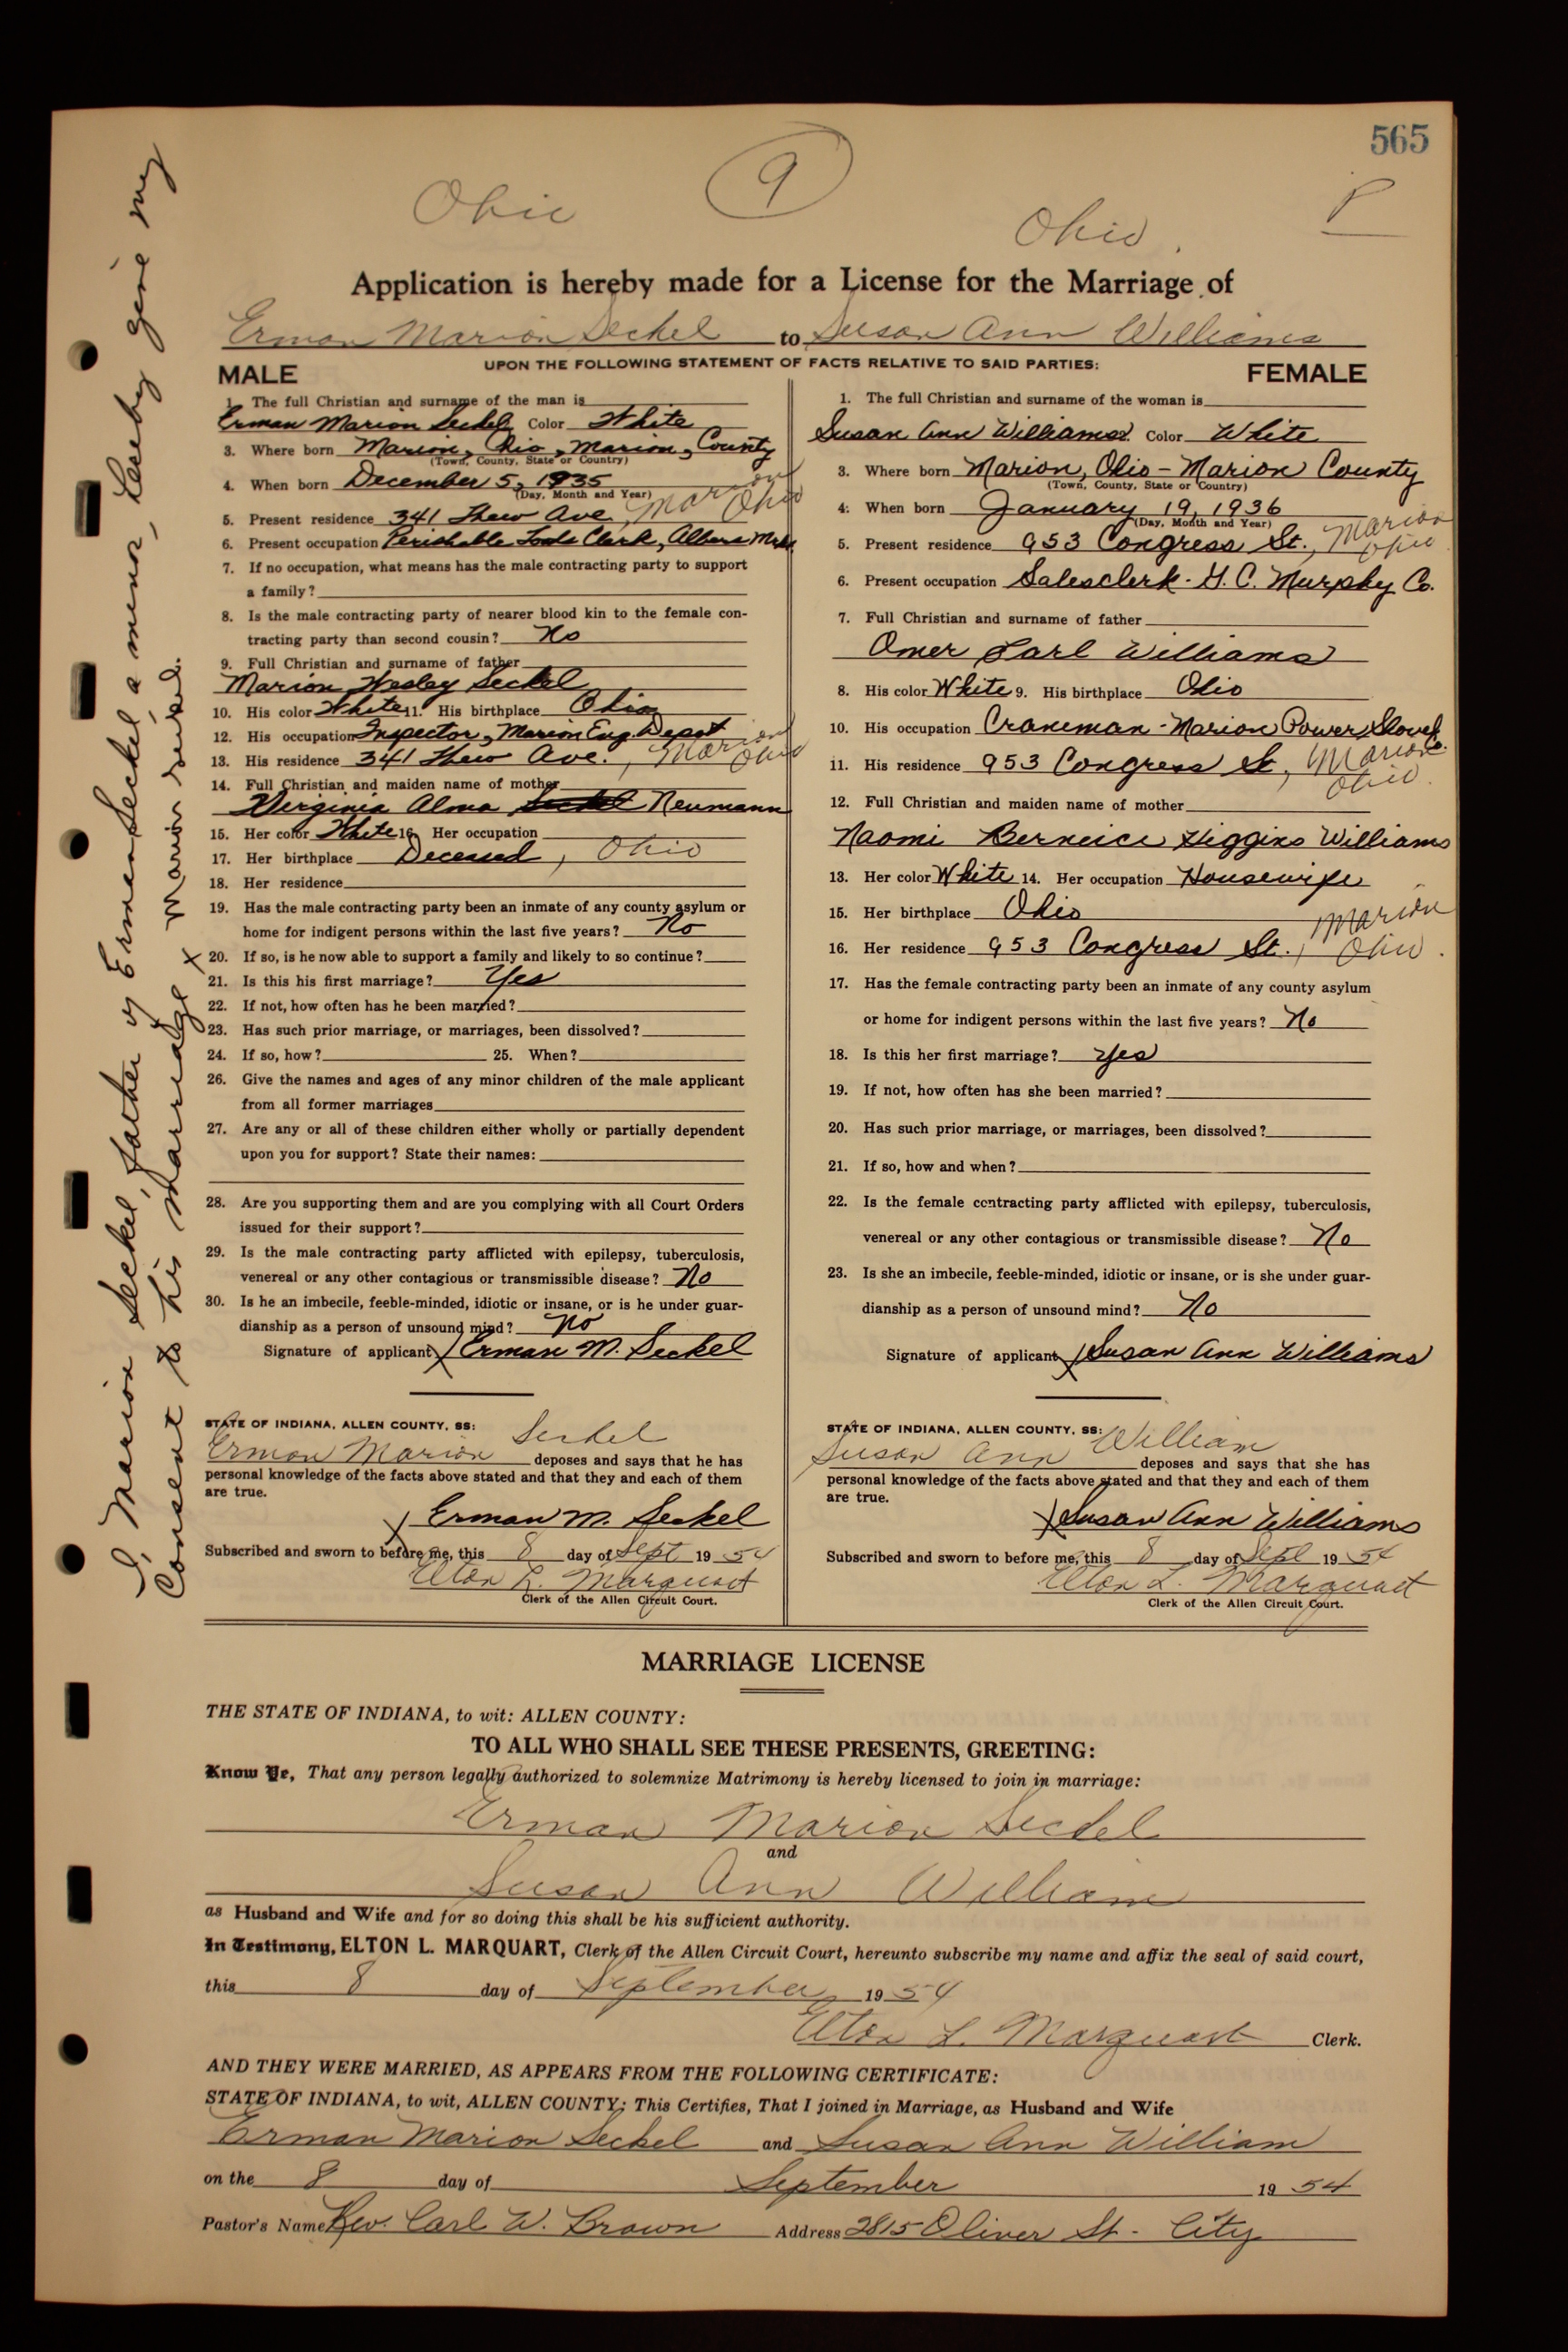 565
Ohio 9 Ohio P
Application is hereby made for a License for the Marriage of
Erman Marion Seckel to Susan Ann Williams
UPON THE FOLLOWING STATEMENT OF FACTS RELATIVE TO SAID PARTIES:
MALE
1. The full Christian and surname of the man is
Erman Marion Seckel Color White
3. Where born Marion, Ohio, Marion, County
(Town, County, State or Country)
4. When born December 5, 1935
(Day, Month and Year)
5. Present residence 341 Thew Ave, Marion Ohio
6. Present occupation Perishable Foods Clerk,
7. If no occupation, what means has the male contracting party to support
a family?
8. Is the male contracting party of nearer blood kin to the female con-
tracting party than second cousin? No
9. Full Christian and surname of father
Marion Wesley Seckel
10. His color White 11. His birthplace Ohio
12. His occupation Inspector, Marion Eng. Depot
13. His residence 341 Thew Ave., Marion Ohio
14. Full Christian and maiden name of mother
Virginia Alma Seckel Neumann
15. Her color White 16. Her occupation
17. Her birthplace Deceased, Ohio
18. Her residence
19. Has the male contracting party been an inmate of any county asylum or
home for indigent persons within the last five years? No
20. If so, is he now able to support a family and likely to so continue?
21. Is this his first marriage? Yes
22. If not, how often has he been married?
23. Has such prior marriage, or marriages, been dissolved?
24. If so, how? 25. When?
26. Give the names and ages of any minor children of the male applicant
from all former marriages
27. Are any or all of these children either wholly or partially dependent
upon you for support? State their names:
28. Are you supporting them and are you complying with all Court Orders
issued for their support?
29. Is the male contracting party afflicted with epilepsy, tuberculosis,
venereal or any other contagious or transmissible disease? No
30. Is he an imbecile, feeble-minded, idiotic or insane, or is he under guar-
dianship as a person of unsound mind? No
Signature of applicant X Erman M. Seckel
STATE OF INDIANA, ALLEN COUNTY, SS:
Erman Marion Seckel deposes and says that he has
personal knowledge of the facts above stated and that they and each of them
are true.
X Erman M. Seckel
Subscribed and sworn to before me, this 8 day of Sept 1954
Elton L. Marquart
Clerk of the Allen Circuit Court.
FEMALE
1. The full Christian and surname of the woman is
Susan Ann Williams Color White
3. Where born Marion, Ohio - Marion County
(Town, County, State or Country)
4. When born January 19, 1936
(Day, Month and Year)
5. Present residence 953 Congress St., Marion Ohio
6. Present occupation Salesclerk - G. C. Murphy Co.
7. Full Christian and surname of father
Omer Earl Williams
8. His color White 9. His birthplace Ohio
10. His occupation Craneman - Marion Power Shovel Co.
11. His residence 953 Congress St, Marion Ohio.
12. Full Christian and maiden name of mother
Naomi Berneice Higgins Williams
13. Her color White 14. Her occupation Housewife
15. Her birthplace Ohio
16. Her residence 953 Congress St., Marion Ohio.
17. Has the female contracting party been an inmate of any county asylum
or home for indigent persons within the last five years? No
18. Is this her first marriage? Yes
19. If not, how often has she been married?
20. Has such prior marriage, or marriages, been dissolved?
21. If so, how and when?
22. Is the female contracting party afflicted with epilepsy, tuberculosis,
venereal or any other contagious or transmissible disease? No
23. Is she an imbecile, feeble-minded, idiotic or insane, or is she under guar-
dianship as a person of unsound mind? No
Signature of applicant X Susan Ann Williams
STATE OF INDIANA, ALLEN COUNTY, SS:
Susan Ann William deposes and says that she has
personal knowledge of the facts above stated and that they and each of them
are true.
X Susan Ann Williams
Subscribed and sworn to before me, this 8 day of Sept 1954
Elton L. Marquart
Clerk of the Allen Circuit Court.
I, Marion Seckel, father of Erman Seckel a minor, hereby give my
Consent to his marriage X Marion Seckel.
MARRIAGE LICENSE
THE STATE OF INDIANA, to wit: ALLEN COUNTY:
TO ALL WHO SHALL SEE THESE PRESENTS, GREETING:
Know Ye, That any person legally authorized to solemnize Matrimony is hereby licensed to join in marriage:
Erman Marion Seckel
and
Susan Ann William
as Husband and Wife and for so doing this shall be his sufficient authority.
In Testimony, ELTON L. MARQUART, Clerk of the Allen Circuit Court, hereunto subscribe my name and affix the seal of said court,
this 8 day of September 1954
Elton L. Marquart Clerk.
AND THEY WERE MARRIED, AS APPEARS FROM THE FOLLOWING CERTIFICATE:
STATE OF INDIANA, to wit, ALLEN COUNTY: This Certifies, That I joined in Marriage, as Husband and Wife
Erman Marion Seckel and Susan Ann William
on the 8 day of September 1954
Pastor's Name Rev. Carl W. Brown Address 2815 Oliver St - City